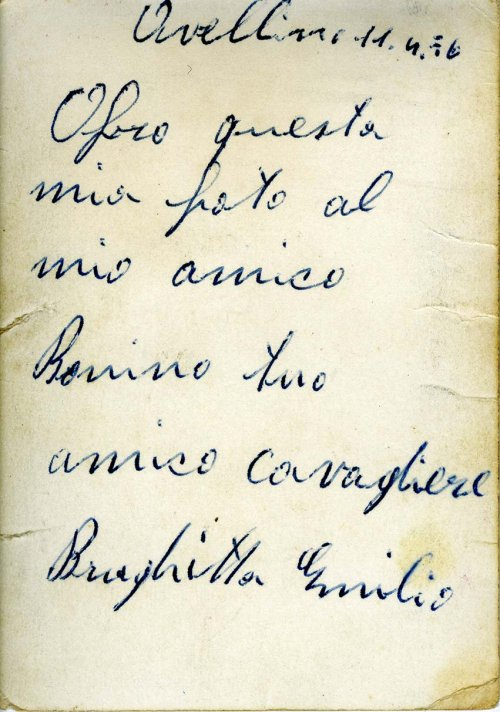 Avellino 11.4.56
Ofro questa
mia foto al
mio amico
Bonino tuo
amico cavagliere
Braghitta Emilio